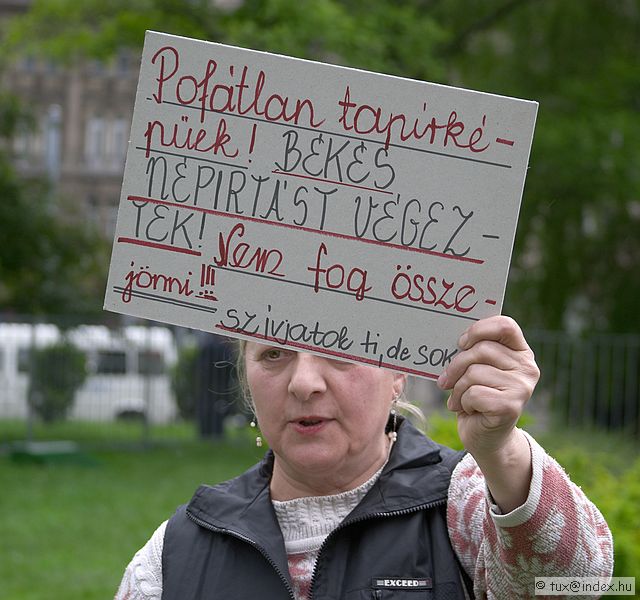 Pofátlan tapírké-
püek! BÉKÉS
NÉPIRTÁST VÉGEZ-
TEK! Nem fog össze-
jönni!!!
szivjatok ti, de sok
EXCEED
© tux@index.hu